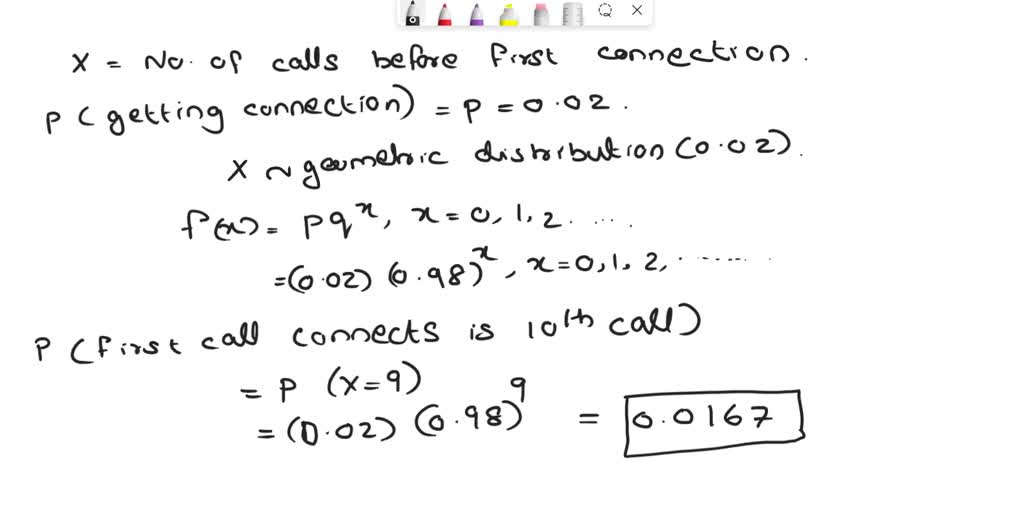 X = No. of calls before first connection.
P (getting connection) = P = 0.02.
X ~ geometric distribution (0.02).
f(x) = pq^x, x = 0, 1, 2 .....
= (0.02) (0.98)^x, x = 0, 1, 2, .......
P (first call connects is 10th call)
= P (x = 9)
= (0.02) (0.98)^9 = 0.0167